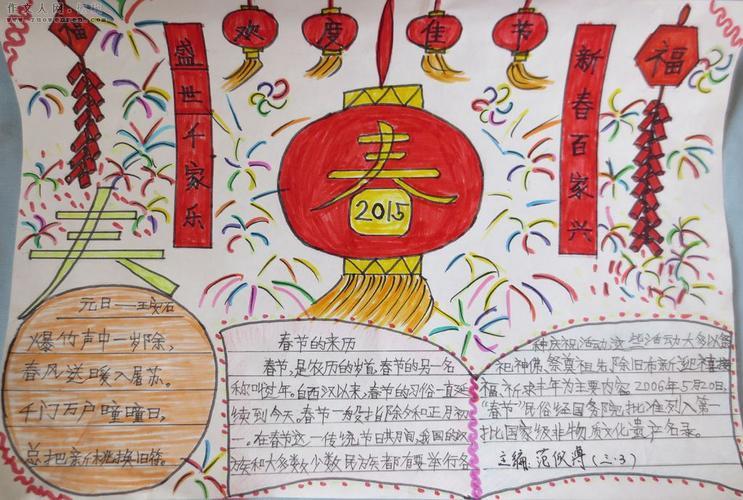 作文人网
www.zuowenren.com
福
欢度佳节
福
盛世千家乐
新春百家兴
春
2015
春
元日——王安石
爆竹声中一岁除,
春风送暖入屠苏。
千门万户曈曈日,
总把新桃换旧符。
春节的来历
春节,是农历的岁首,春节的另一名
称叫过年。自西汉以来,春节的习俗一直延
续到今天。春节一般指除夕和正月初
一。在春节这一传统节日其间,我国的汉
族和大多数少数民族都有要举行各
种庆祝活动,这些活动大多以祭
祀神佛、祭奠祖先、除旧布新、迎禧接
福、祈求丰年为主要内容。2006年5月20日,
“春节”民俗经国务院批准列入第一
批国家级非物质文化遗产名录。
主编:范仪(三·3)